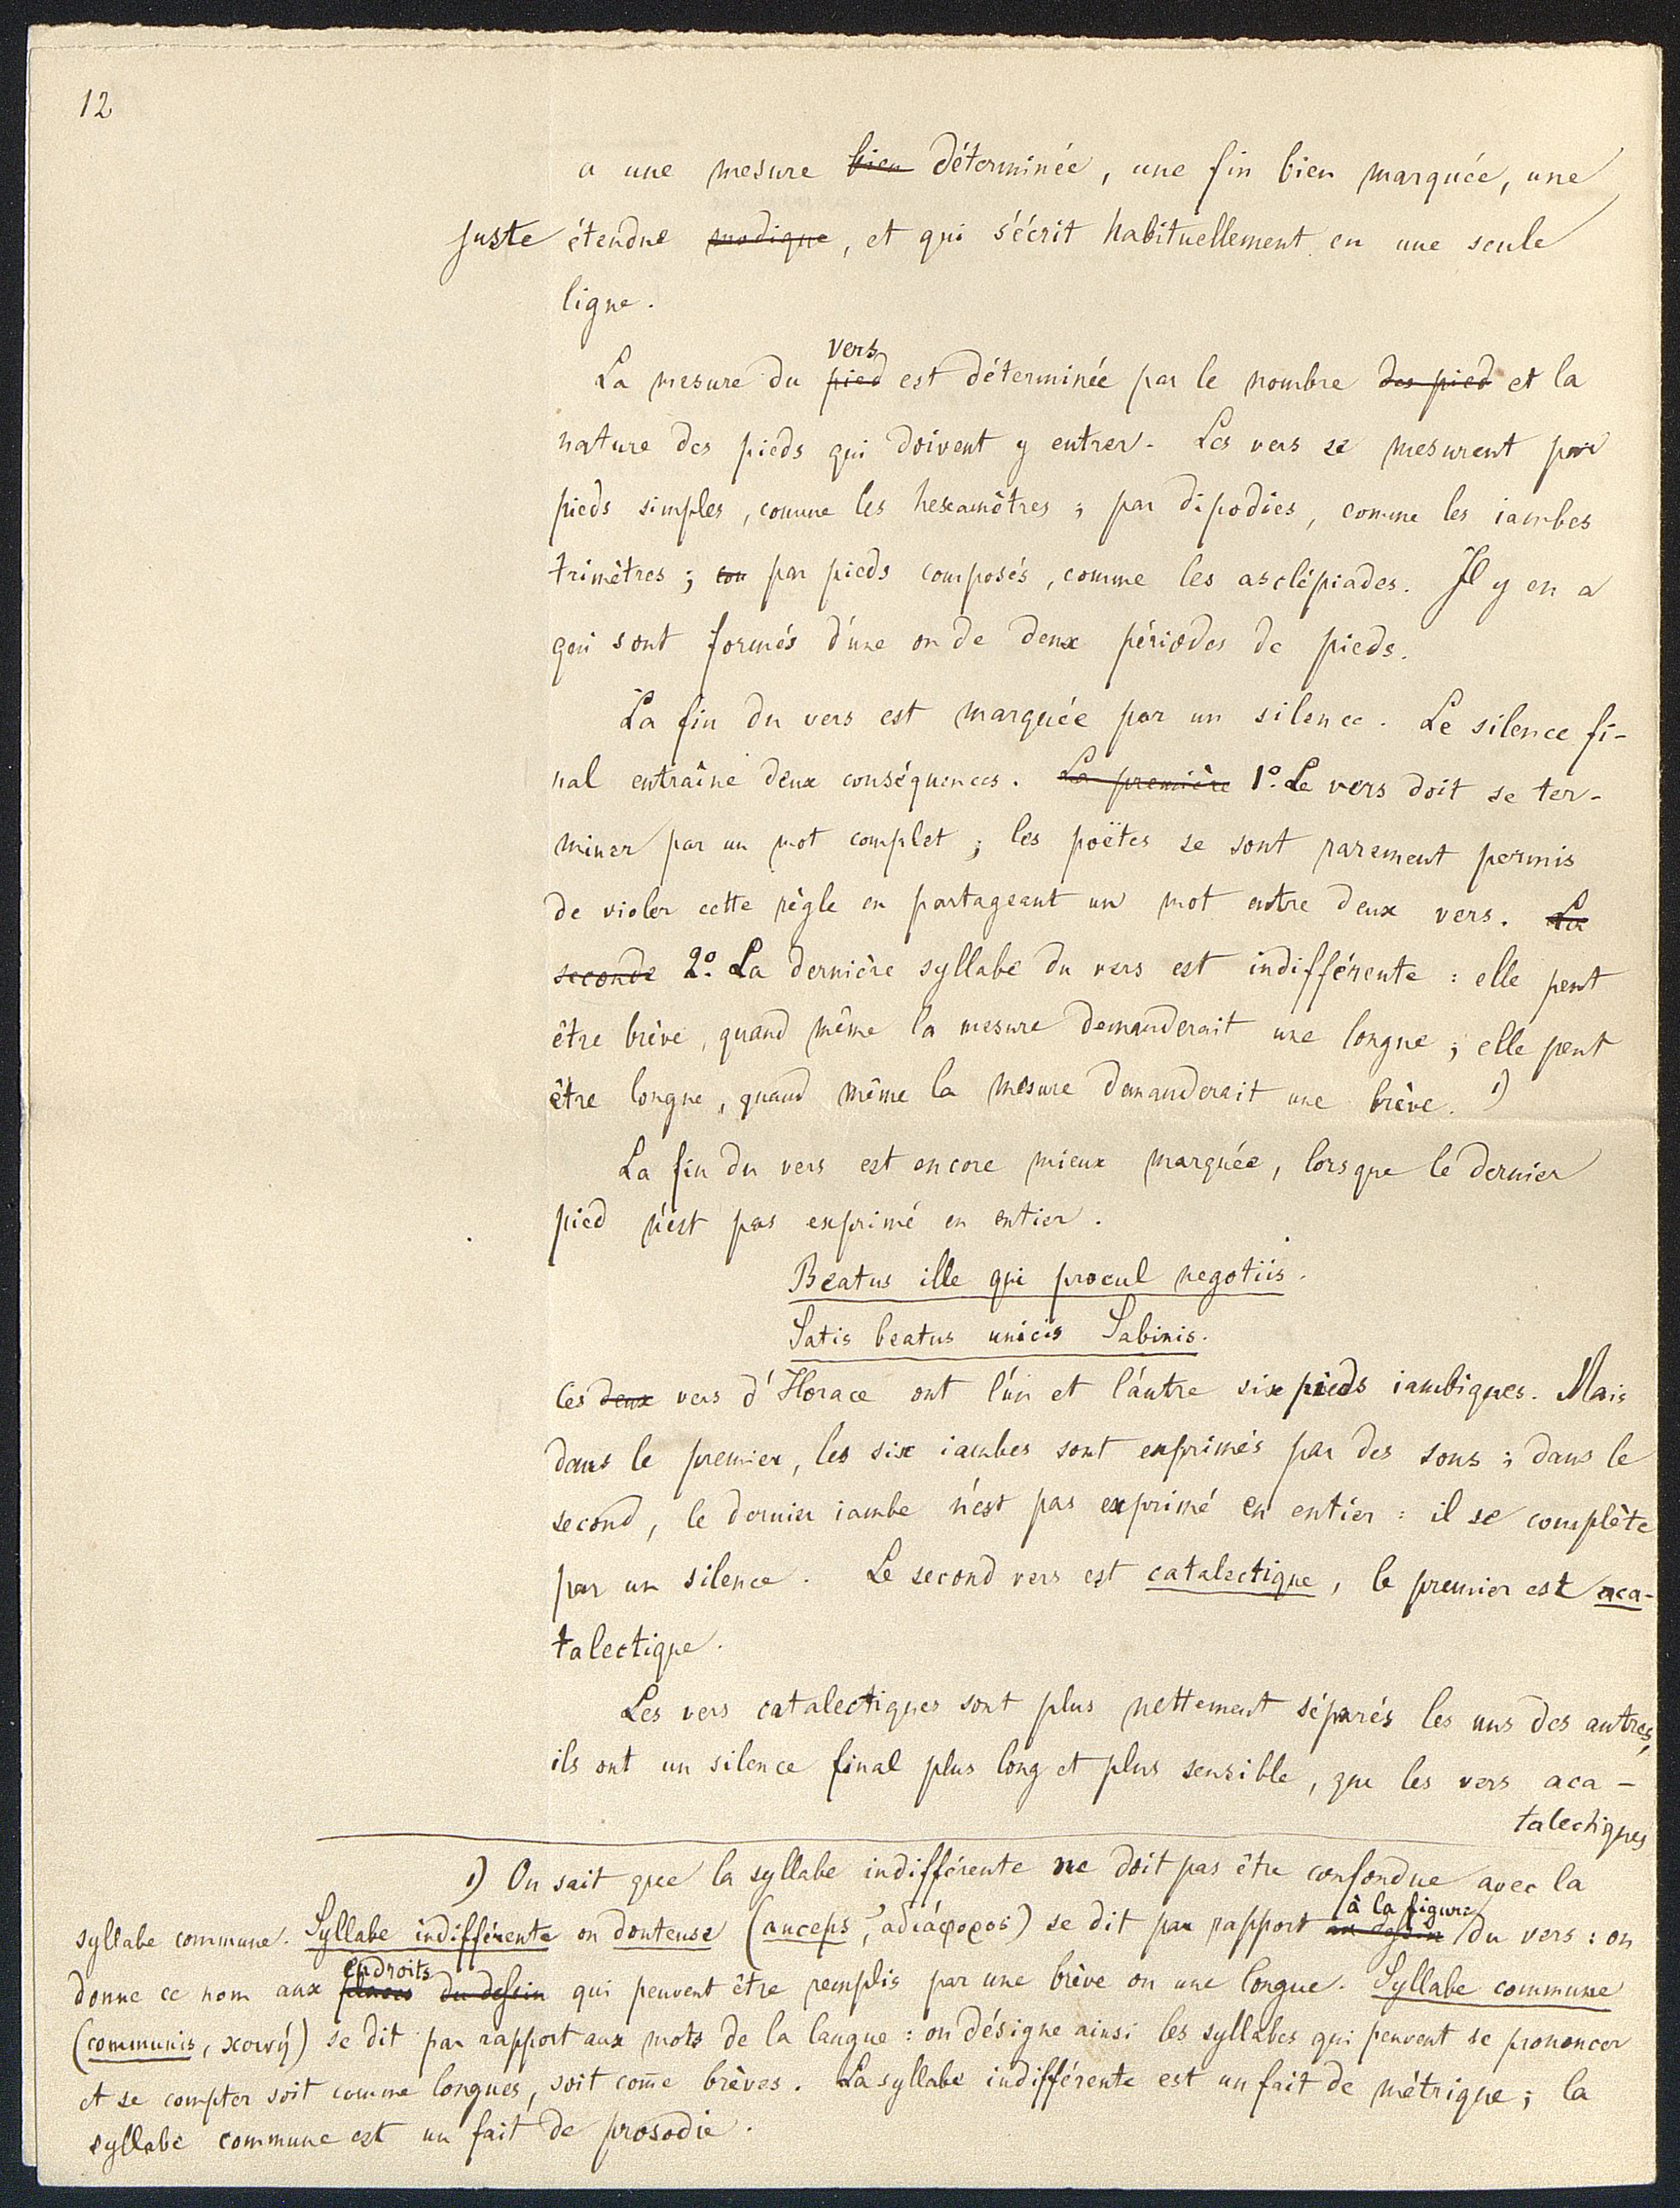 12
a une mesure bien déterminée, une fin bien marquée, une
juste étendue modique, et qui s'écrit habituellement en une seule
ligne.
vers
La mesure du pied est déterminée par le nombre des pied et la
nature des pieds qui doivent y entrer. Les vers se mesurent par
pieds simples, comme les hexamètres ; par dipodies, comme les iambes
trimètres ; ou par pieds composés, comme les asclépiades. Il y en a
qui sont formés d'une ou de deux périodes de pieds.
La fin du vers est marquée par un silence. Le silence fi-
nal entraîne deux conséquences. La première 1º. Le vers doit se ter-
miner par un mot complet ; les poëtes se sont rarement permis
de violer cette règle en partageant un mot entre deux vers. La
seconde 2º. La dernière syllabe du vers est indifférente : elle peut
être brève, quand même la mesure demanderait une longue ; elle peut
être longue, quand même la mesure demanderait une brève. 1)
La fin du vers est encore mieux marquée, lorsque le dernier
pied n'est pas exprimé en entier.
Beatus ille qui procul negotiis.
Satis beatus unicis Sabinis.
Ces deux vers d'Horace ont l'un et l'autre six pieds iambiques. Mais
dans le premier, les six iambes sont exprimés par des sons ; dans le
second, le dernier iambe n'est pas exprimé en entier : il se complète
par un silence. Le second vers est catalectique, le premier est aca-
talectique.
Les vers catalectiques sont plus nettement séparés les uns des autres,
ils ont un silence final plus long et plus sensible, que les vers aca-
talectiques
1) On sait que la syllabe indifférente ne doit pas être confondue avec la
à la figure
syllabe commune. Syllabe indifférente ou douteuse (anceps, ἀδιάφορος) se dit par rapport au dessin du vers : on
endroits
donne ce nom aux places du dessin qui peuvent être remplis par une brève ou une longue. Syllabe commune
(communis, κοινή) se dit par rapport aux mots de la langue : on désigne ainsi les syllabes qui peuvent se prononcer
et se compter soit comme longues, soit com̅e brèves. La syllabe indifférente est un fait de métrique ; la
syllabe commune est un fait de prosodie.